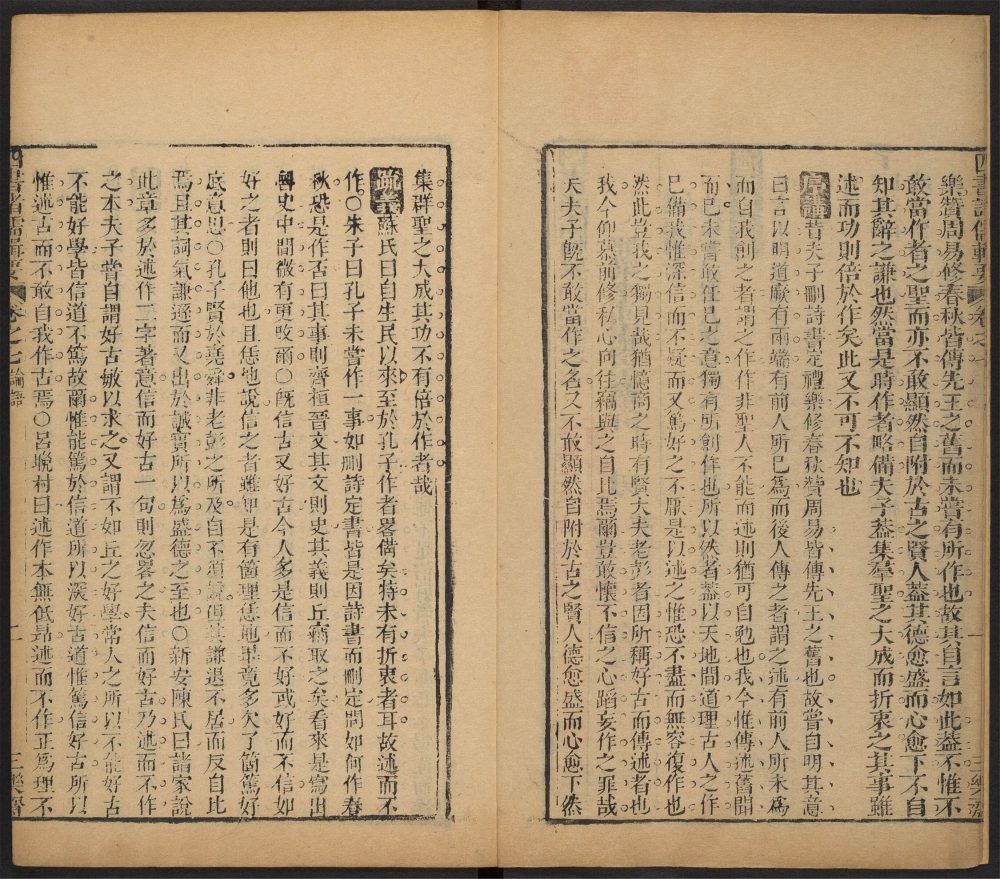 樂贊周易修春秋皆傳先王之舊而未嘗有所作也故其自言如此蓋不惟不
敢當作者之聖而亦不敢顯然自附於古之賢人蓋其德愈盛而心愈下不自
知其辭之謙也然當是時作者略備夫子蓋集羣聖之大成而折衷之其事雖
述而功則倍於作矣此又不可不知也
昔夫子刪詩書定禮樂修春秋贊周易皆傳先王之舊也故嘗自明其意
曰言以明道厥有兩端有前人所已為而後人傳之者謂之述有前人所未為
而自我創之者謂之作作非聖人不能而述則猶可自勉也我今惟傳述舊聞
而已未嘗敢任己之意獨有所創作也所以然者蓋以天地間道理古人之作
已備我惟深信而不疑而又篤好之不厭是以述之惟恐不盡而無容復作也
然此豈我之獨見哉猶憶商之時有賢大夫老彭者因所稱好古而傳述者也
我今仰慕前修私心向往竊與之自比焉爾豈敢懷不信之心蹈妄作之罪哉
夫夫子旣不敢當作之名又不敢顯然自附於古之賢人德愈盛而心愈下然
集群聖之大成其功不有倍於作者哉
蘇氏曰自生民以來至於孔子作者畧備矣特未有折衷者耳故述而不
作○朱子曰孔子未嘗作一事如刪詩定書皆是因詩書而刪定問如何作春
秋恐是作否曰其事則齊桓晉文其文則史其義則丘竊取之矣看來是寫出
魯史中間微有更改爾○旣信古又好古今人多是信而不好或好而不信如
好之者則曰他也且恁地說信之者雖知是有箇理恁地畢竟多欠了箇篤好
底意思○孔子賢於堯舜非老彭之所及自不須說但其謙退不居而反自比
焉且其詞氣謙遜而又出於誠實所以為盛德之至也○新安陳氏曰諸家說
此章多於述作二字著意信而好古一句則忽畧之夫信而好古乃述而不作
之本夫子嘗自謂好古敏以求之又謂不如丘之好學常人之所以不能好古
不能好學皆信道不篤故爾惟能篤於信道所以深好古道惟篤信好古所以
惟述古而不敢自我作古焉○呂晚村曰述作本無低昻述而不作正為理不
四書諸儒輯要 卷之七 論語 二 三樂齋